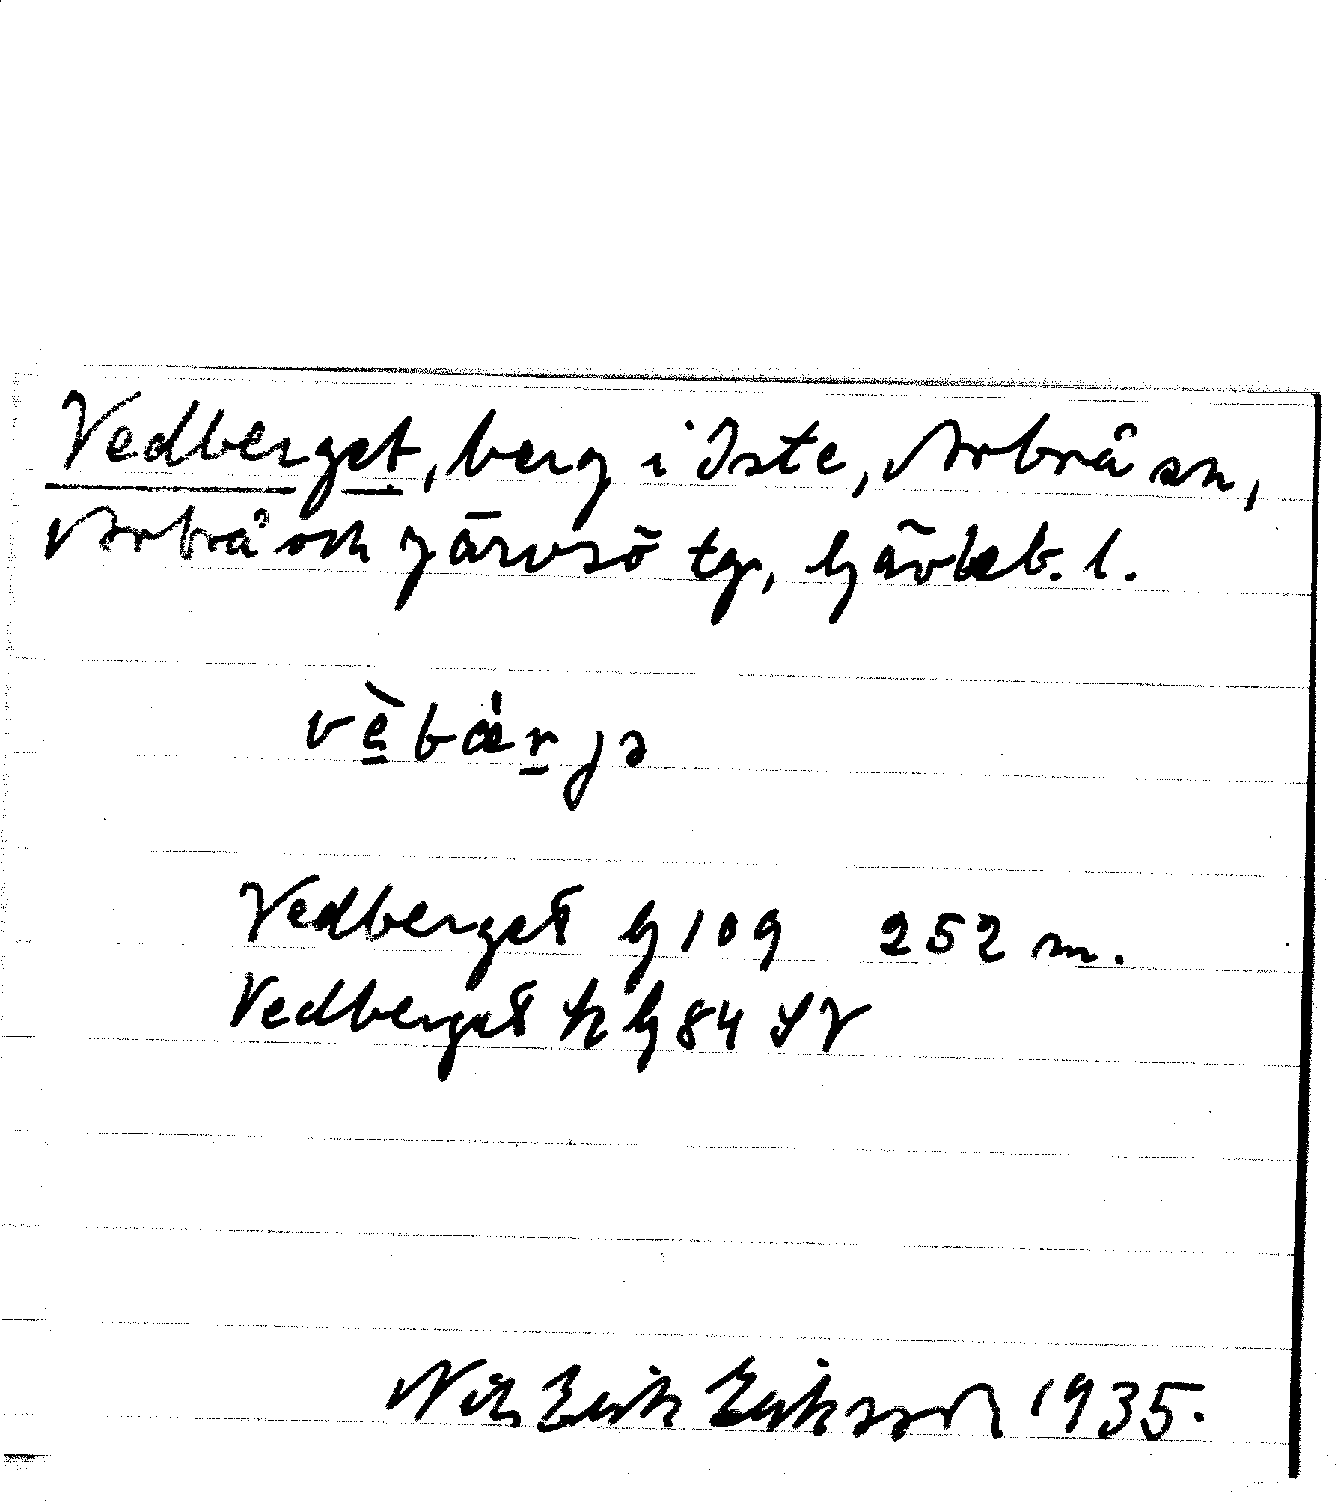 Vedberget, berg i Iste, Arbrå sn,
Arbrå och Järvsö tg, Gävleb. l.
vèbærjə
Vedberget G 109 252 m.
Vedberget G 84 SV
Nils Erik Eriksson 1935.